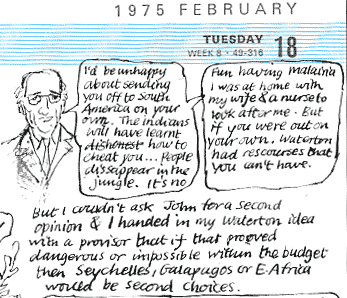 1975 FEBRUARY
TUESDAY
WEEK 8 • 49-316 18
I'd be unhappy
about sending
you off to South
America on your
own. The indians
will have learnt
dishonest how to
cheat you... People
dissappear in the
jungle. It's no
Fun having malaria
I was at home with
my wife & a nurse to
look after me. But
if you were out on
your own. Waterton
had rescourses that
you can't have.
But I couldn't ask John for a second
opinion & I handed in my Waterton idea
with a provisor that if that proved
dangerous or impossible within the budget
then Seychelles, Galapagos or E. Africa
would be second choices.